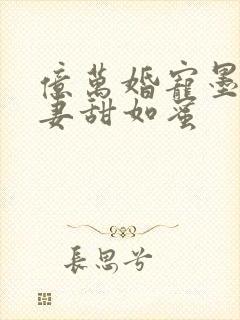 億萬婚寵墨
妻甜如蜜
長思兮